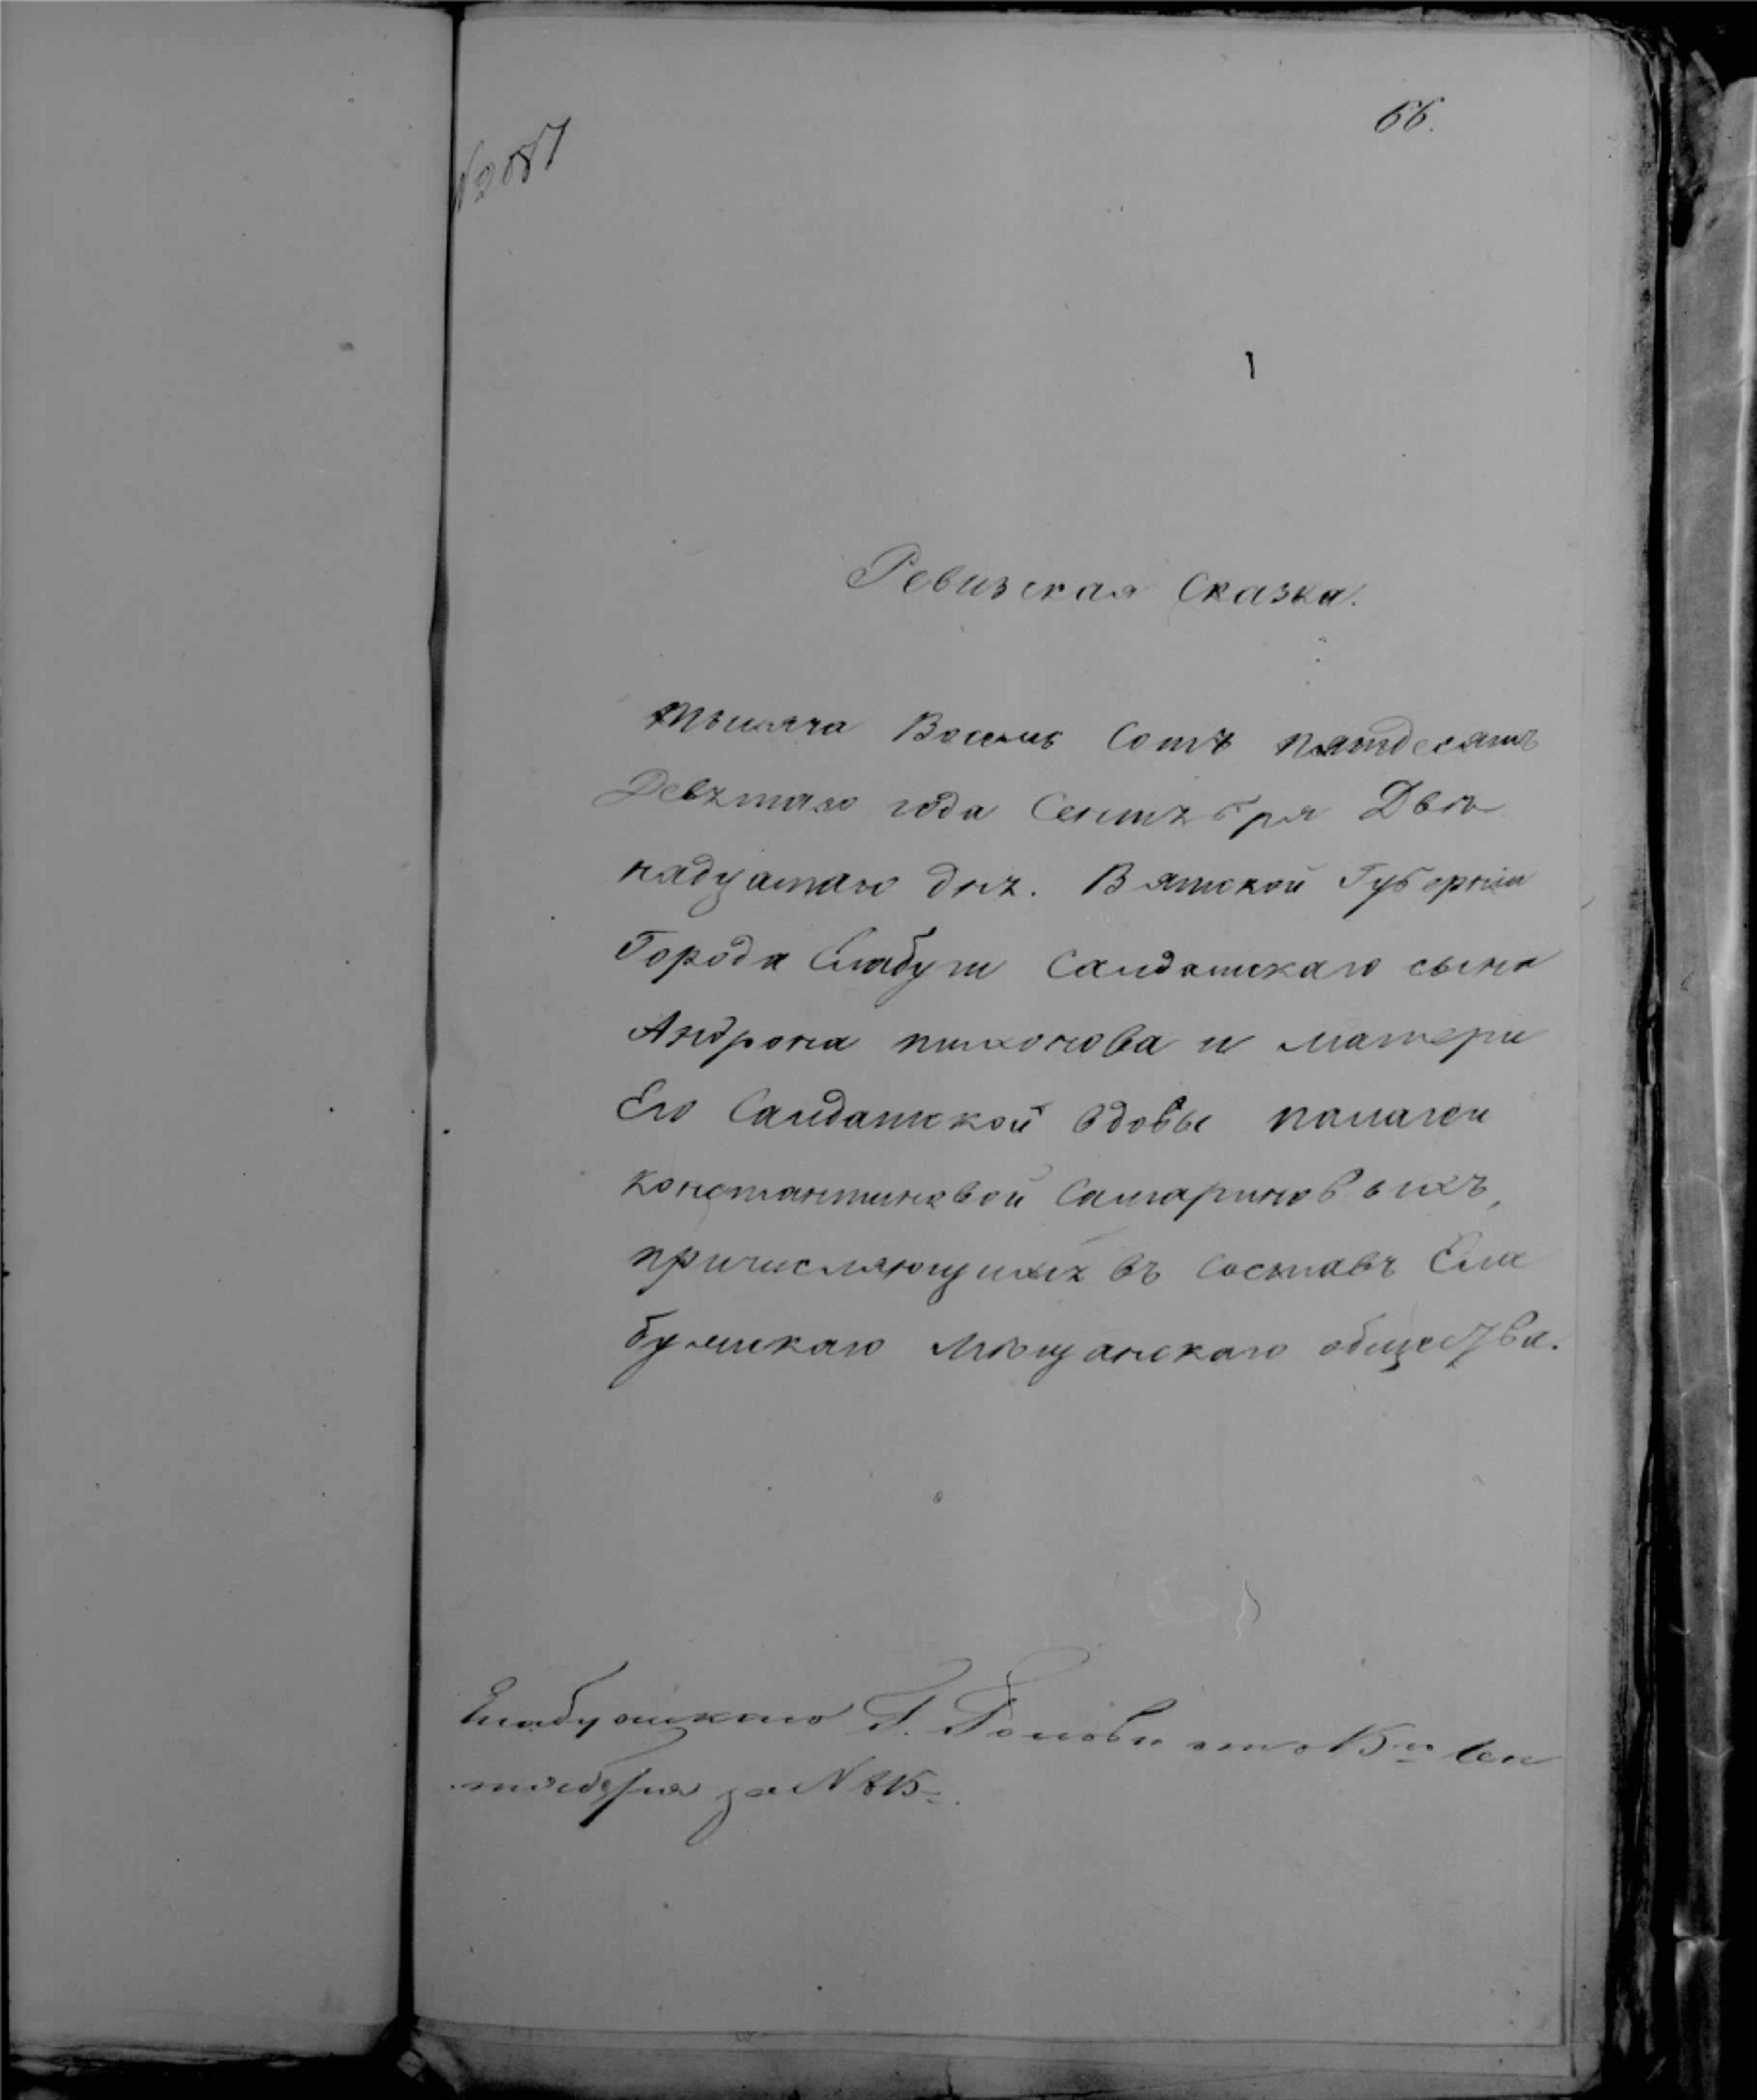 66.
Ревизская Сказка.
тысяча Восемь Сотъ пятдесятъ
Девятаго года Сентября Две
надцатаго дня. Вятской Губерніи
Города Елабуги Салдатскаго сына
Андрона тихонова и матери
Его Салдатской вдовы палагеи
константиновой Самариновыхъ,
причисляющихся въ Составъ Ела
бужскаго мѣщанскаго общества.
Елабужскаго Г. Головы отъ 15го Сен
тября за N